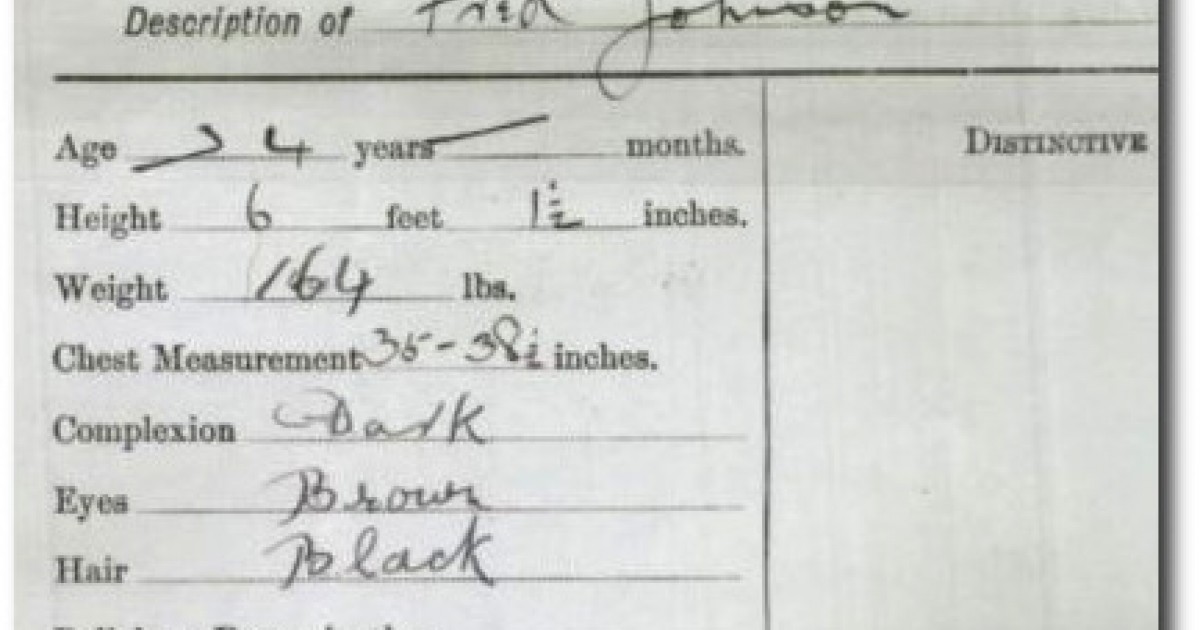 Description of Fred Johnson
Age 24 years months.
DISTINCTIVE
Height 6 feet 1½ inches.
Weight 164 lbs.
Chest Measurement 35-38½ inches.
Complexion Dark
Eyes Brown
Hair Black